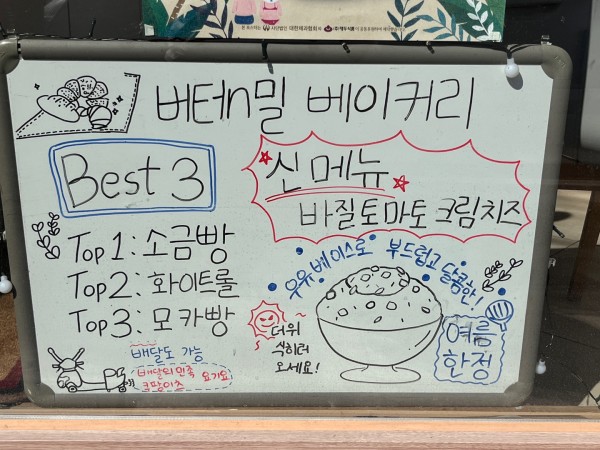 사단법인 대한제과협회
버터n밀 베이커리
Best 3
Top 1 : 소금빵
Top 2 : 화이트롤
Top 3 : 모카빵
신메뉴
바질토마토크림치즈
우유베이스로 부드럽고 달콤한!
더위
식히러
오세요!
여름
한정
배달도 가능
배달의민족 요기요
쿠팡이츠